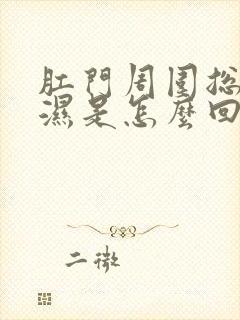 肛門周圍總
濕是怎麼回
二微